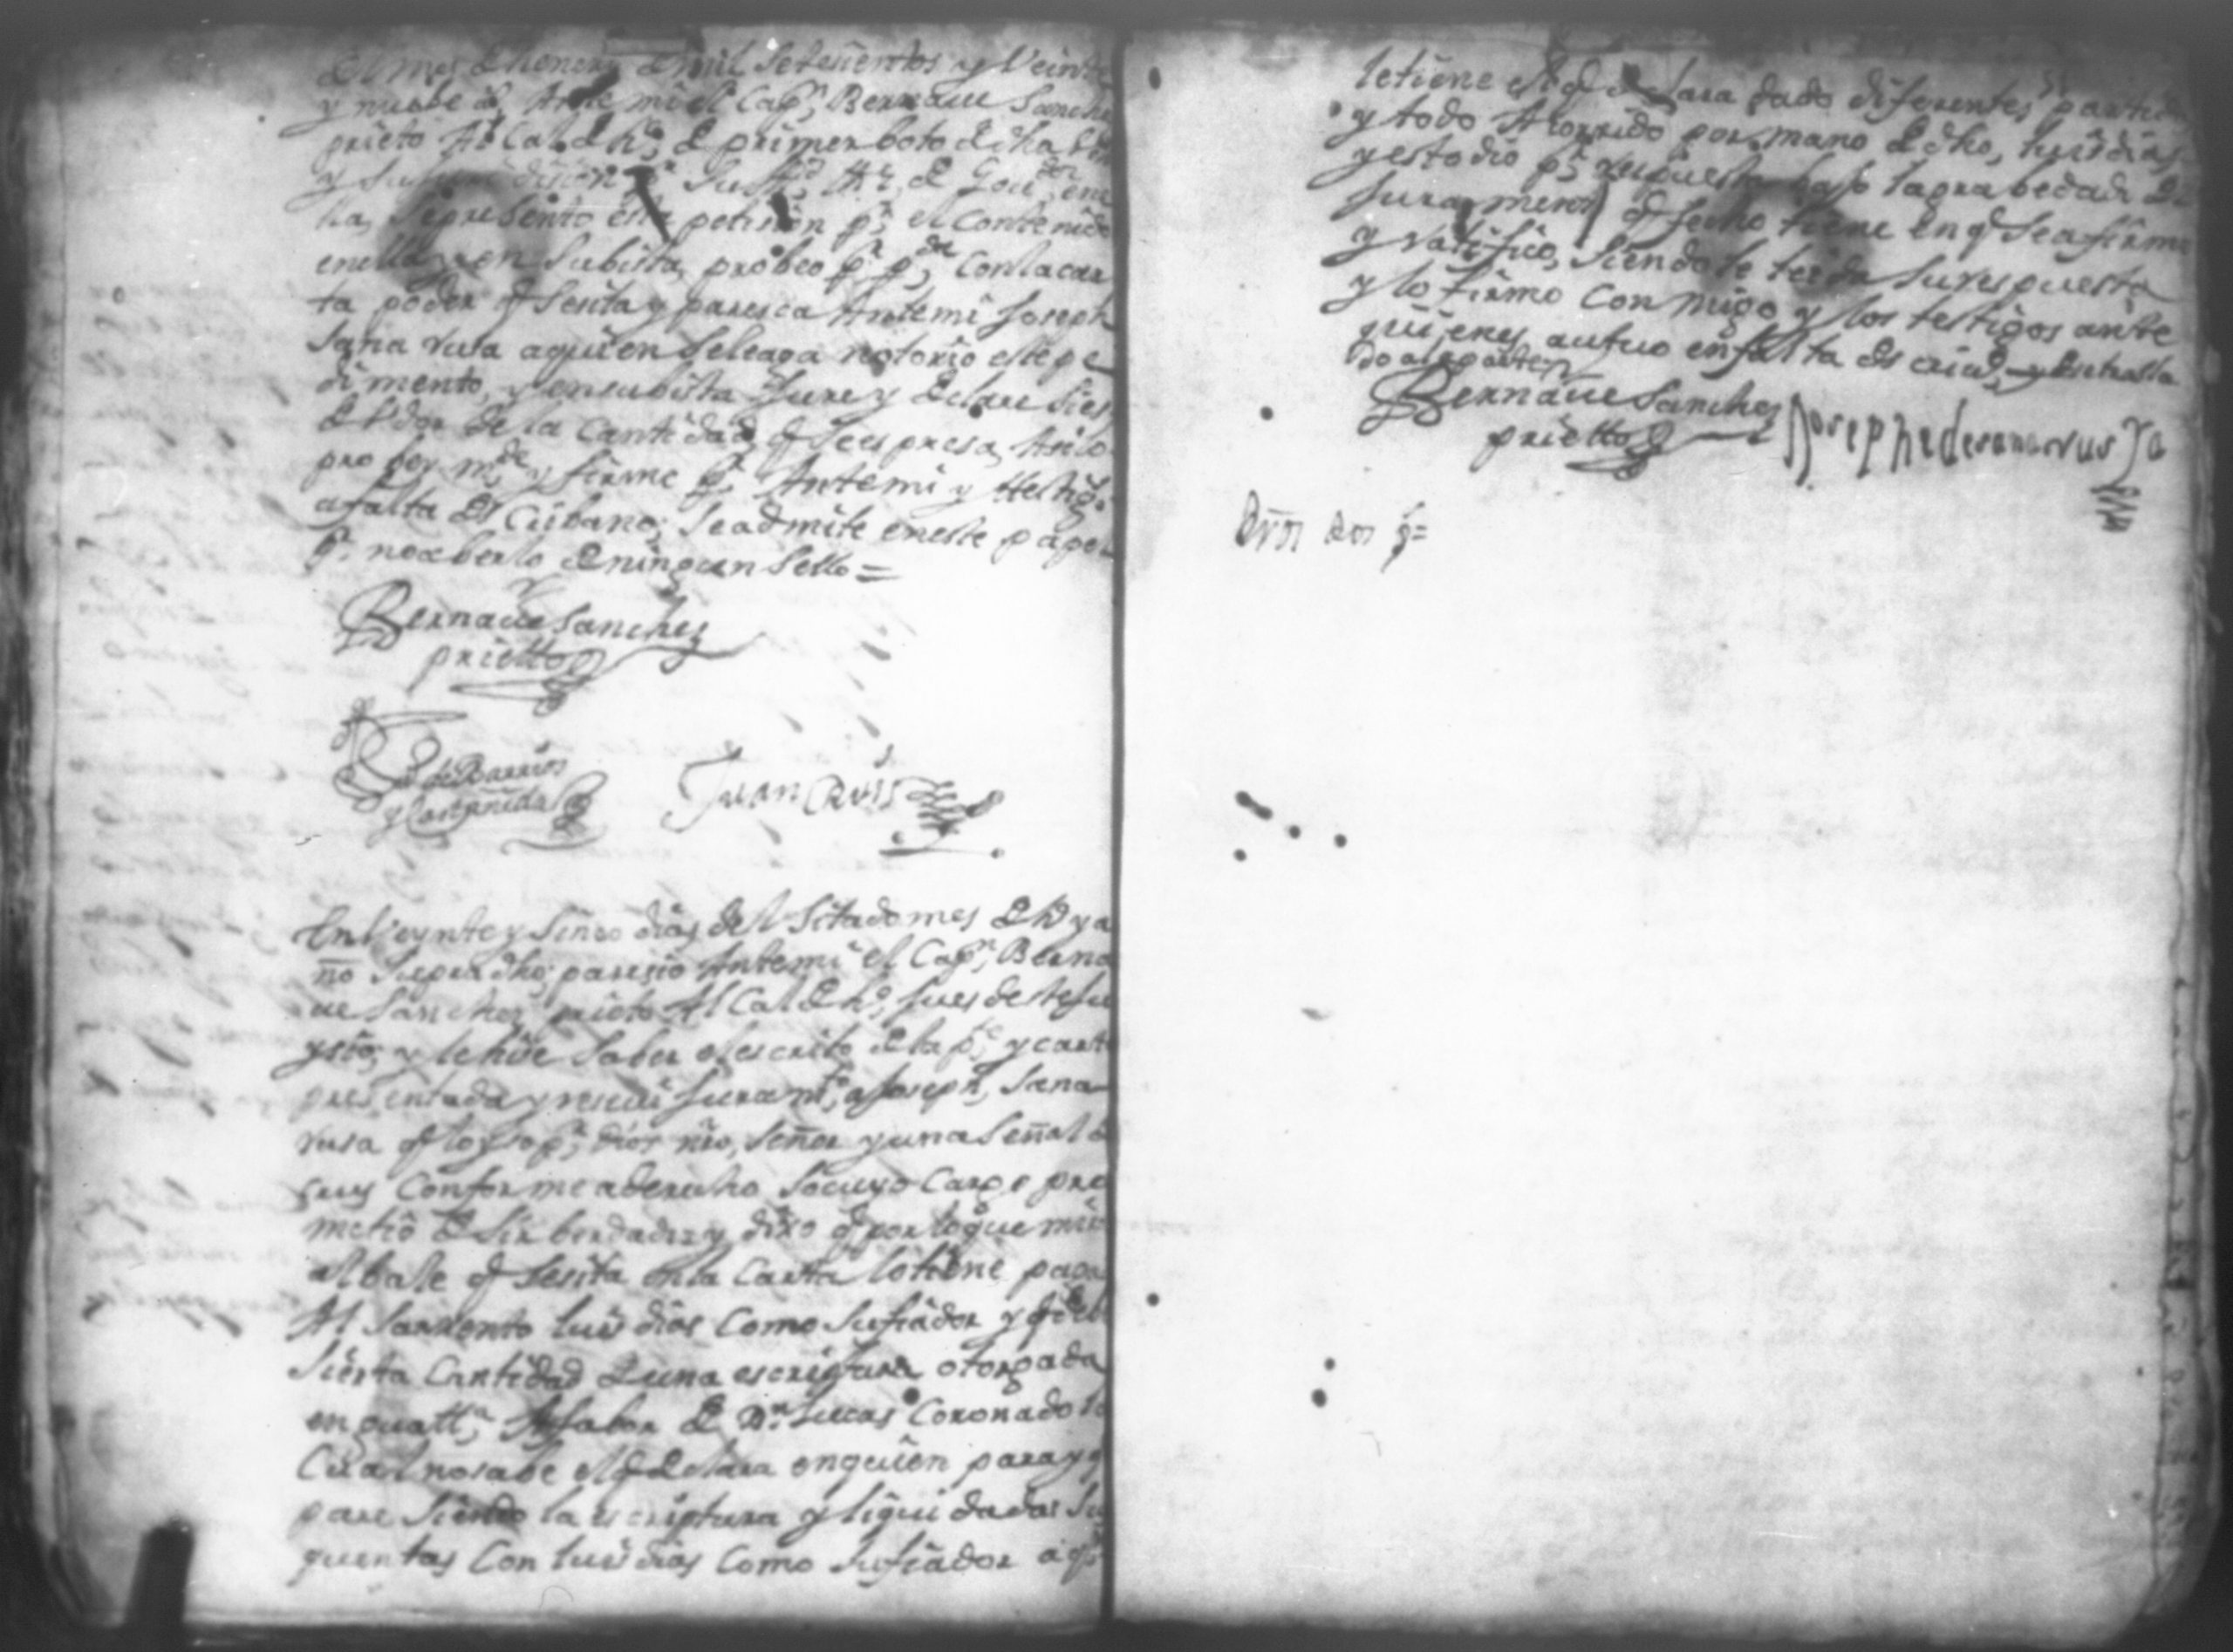 del mes de henero de mil setesientos y Veinte
y nuebe as Ante mi el Capn Bernave Sanches
prieto Al Cal de hd de primer boto de dha
y su Jurisdision
lla, se presento esta petision pr el contenido
enella y en su bista probeo qe pr pda con la car
ta poder q se sita y paresca Ante mi Joseph
Sana rusa a quien se le aga notorio este pe
dimento, y en su bista Jure y declare si es
deudor de la cantidad q se espresa, Asi lo
probey mde y firme pr Ante mi y testigs
a falta de escribano; se admite en este papel
pr no aberlo de ningun sello =
Bernave Sanches
prietto
de Barrios
y Castañida
Juan Ruis
En Veynte y sinco dias del sitado mes de ho y a
ño supra dho; paresio Ante mi el Capn Berna
ve Sanches prieto Al Cal de hd, Jues deste su
ysio, y le hise saber el escrito de la pte y carta
presentada y resevi Juramto, a Joseph, Sana
rusa q lo yso pr, Dios nro, señor y una señal de
crus conforme a derecho so cuyo cargo pro
metio desir berdad, y dixo q por lo que mira
al bale q se sita en la carta lo tiene paga
Al sarxento luis dias como su fiador y q debe
sierta cantidad de una escriptura otorgada
en guatta A fabor de Dn lucas Coronado la
cual no sabe el q declara en quien para y q
pare siendo la escriptura y liqui dadas su
quentas con luis dias como su fiador a qn
le tiene el q declara dado diferentes partidas
y todo A corrido por mano de dho, luis dias
y esto dio pr respuesta bajo la grabedad de
Juramento q fecho tiene en q se afirmo
y ratifico, siendole leida su respuesta
y lo firmo con migo y los testigos ante
quienes autuo en falta de
Bernave Sanches
prietto
Josephe de sana rus Ya